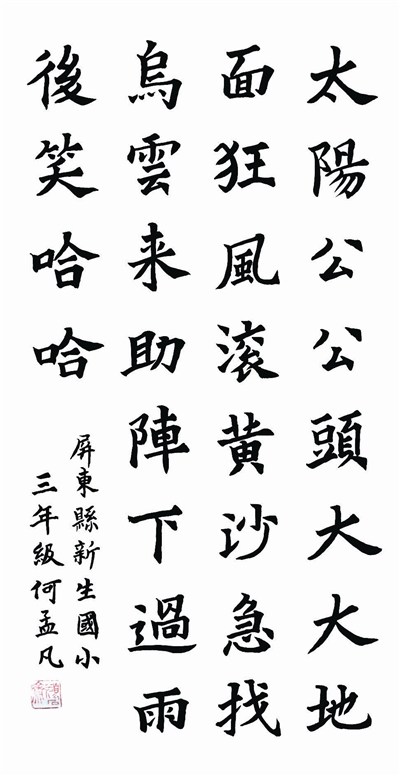 太陽公公頭大大地
面狂風滚黄沙急找
烏雲来助陣下過雨
後笑哈哈
屏東縣新生國小
三年級何孟凡